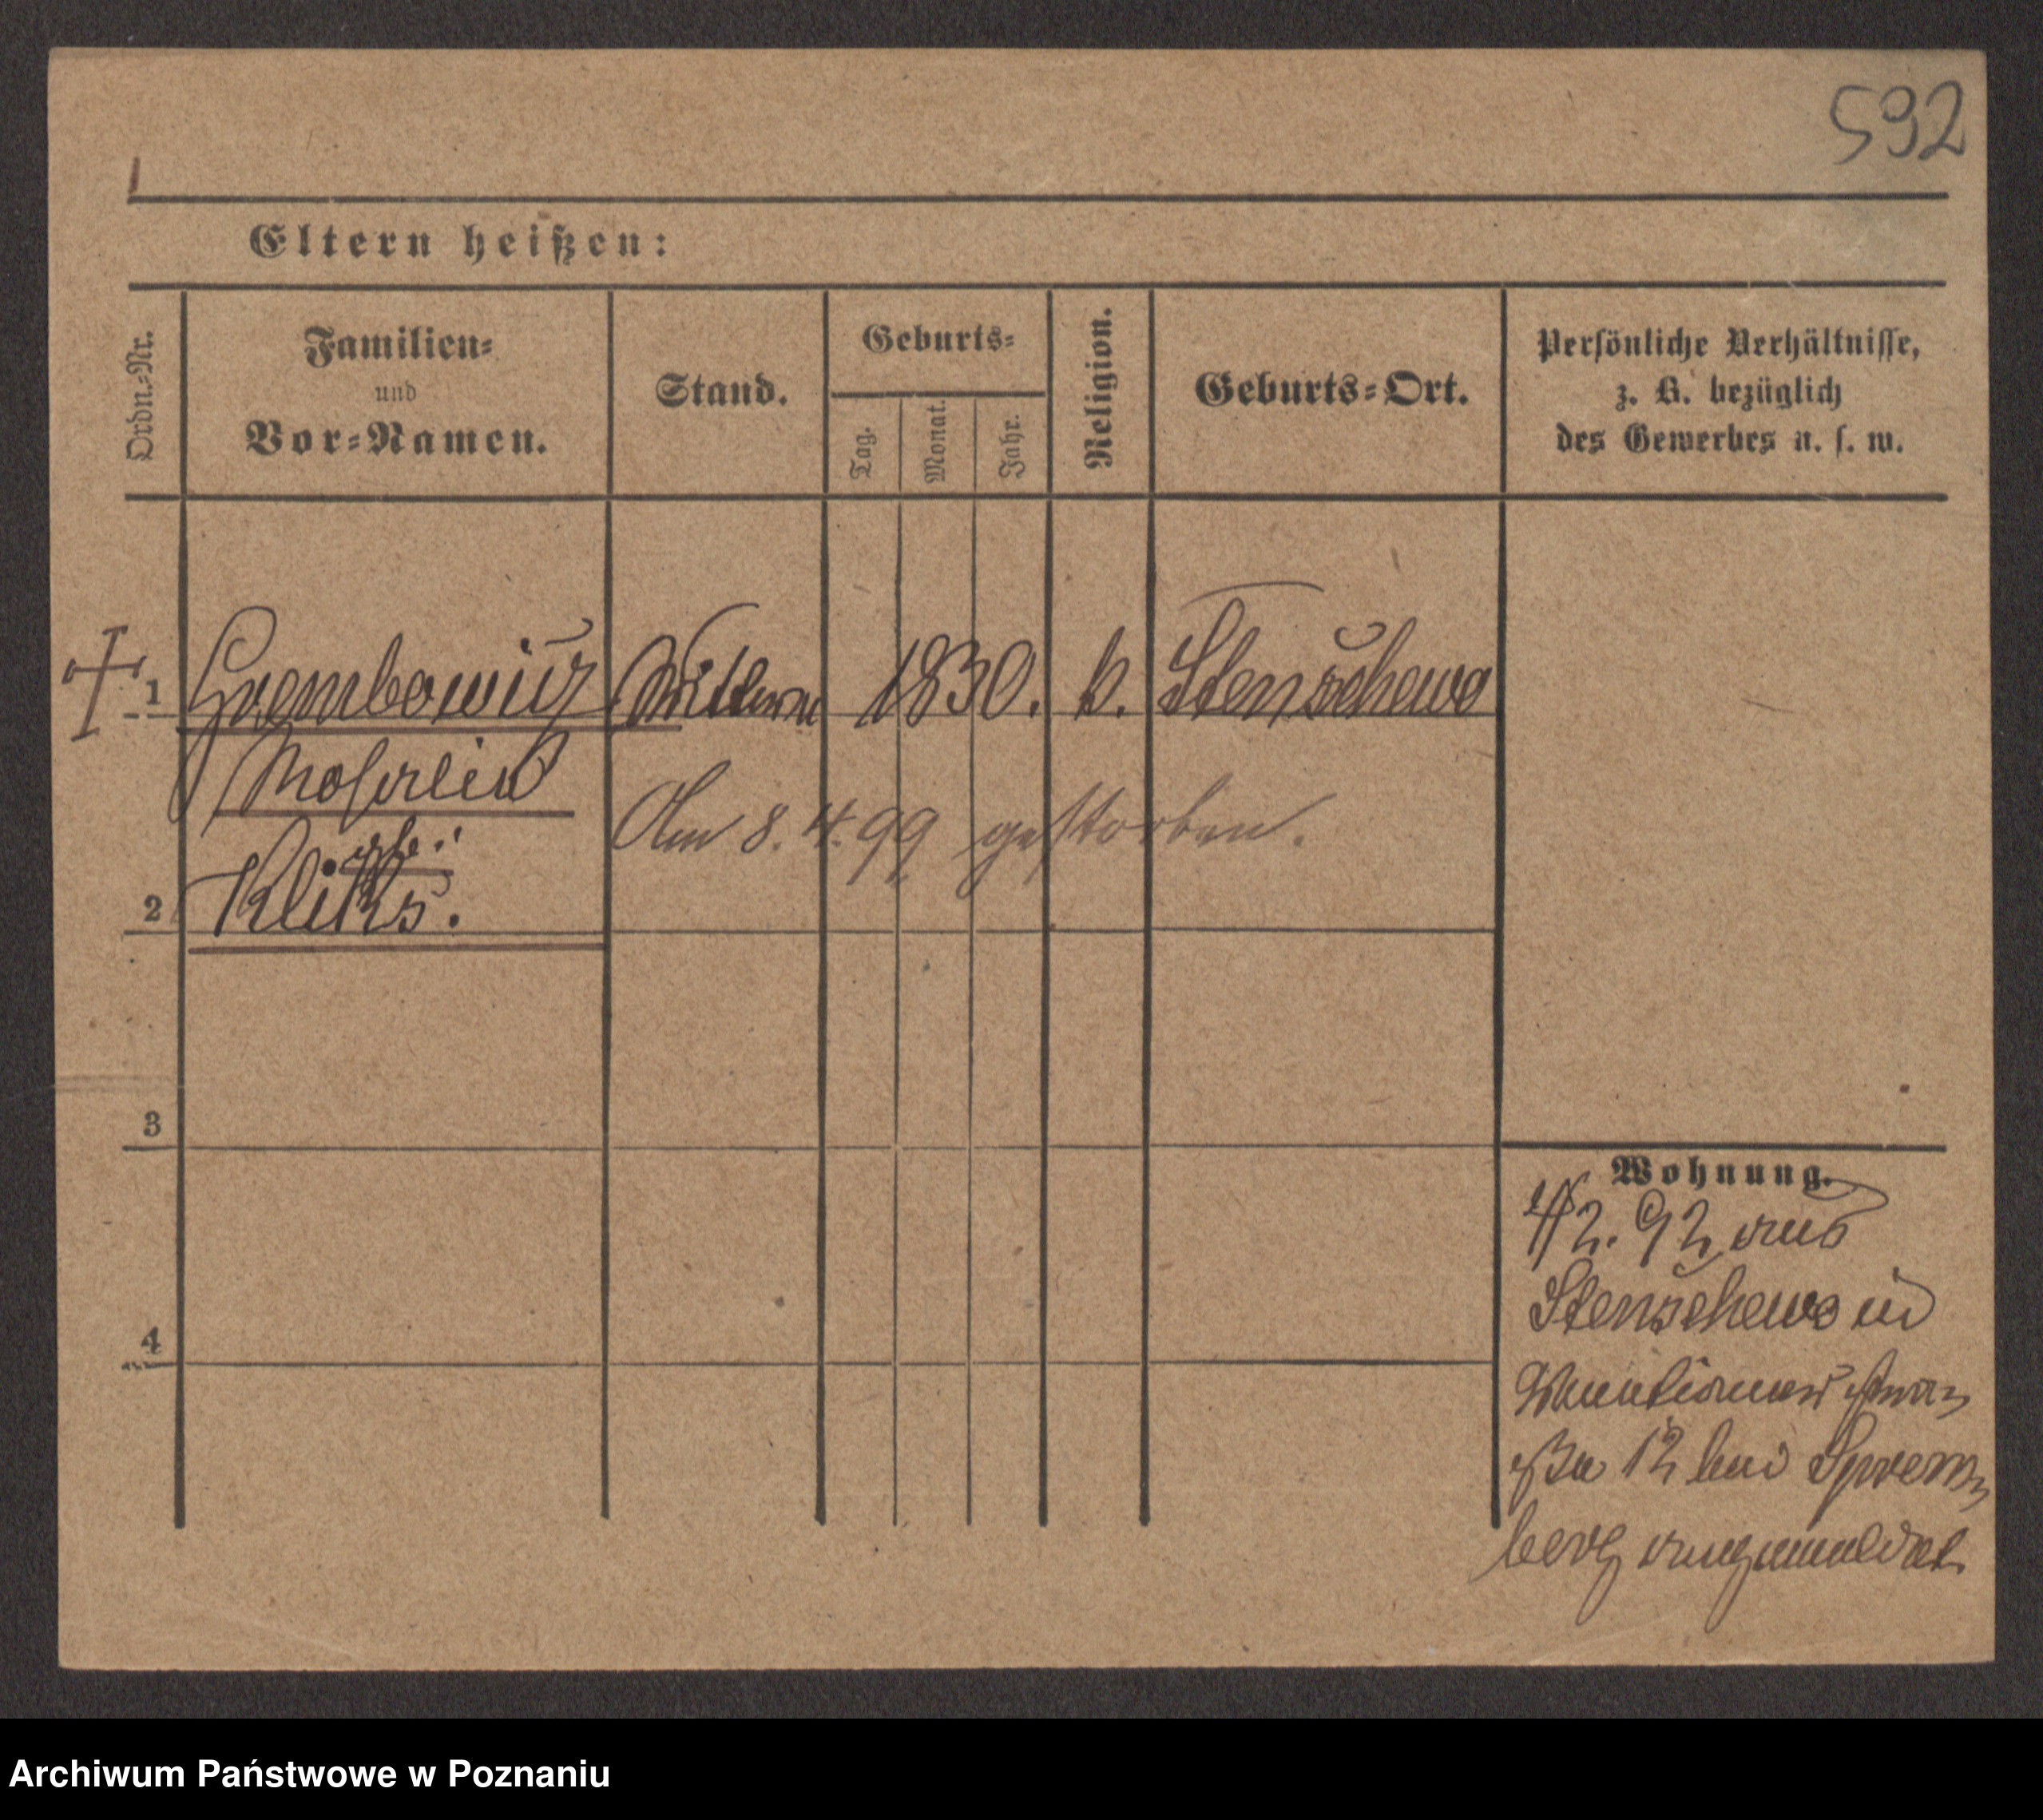 592
Eltern heißen:
Ordn.-Nr.
Familien-
und
Vor-Namen.
Stand.
Geburts-
Tag.
Monat.
Jahr.
Religion.
Geburts-Ort.
Persönliche Verhältnisse,
z. B. bezüglich
des Gewerbes u. s. w.
1 Grembowicz Wittwe 1830. k. Stenschewo
geb.
Am 8. 4. 99 gestorben.
2 Kliks.
3
4
Wohnung.
2. 92 aus
Stenschewo in
12 bei Sprem-
berg angemeldet
Archiwum Państwowe w Poznaniu